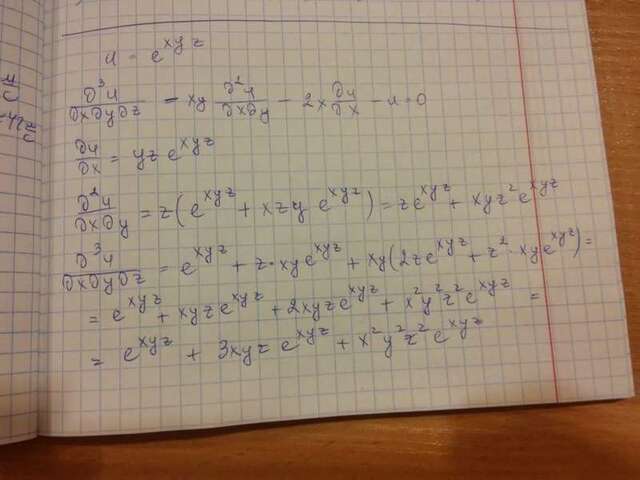 u = e^{xyz}
∂³u/∂x∂y∂z - xy ∂²u/∂x∂y - 2x ∂u/∂x - u = 0
∂u/∂x = yz e^{xyz}
∂²u/∂x∂y = z(e^{xyz} + xzy e^{xyz}) = ze^{xyz} + xyz²e^{xyz}
∂³u/∂x∂y∂z = e^{xyz} + z·xye^{xyz} + xy(2ze^{xyz} + z²·xye^{xyz}) =
= e^{xyz} + xyze^{xyz} + 2xyze^{xyz} + x²y²z²e^{xyz} =
= e^{xyz} + 3xyz e^{xyz} + x²y²z²e^{xyz}